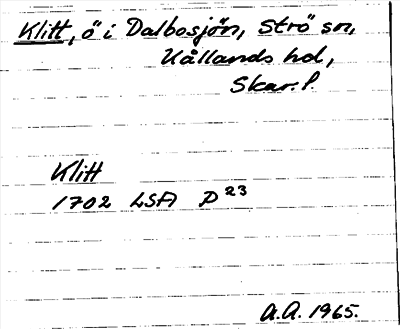 Klitt, ö i Dalbosjön, Strö sn,
Kållands hd,
Skar. l.
Klitt
1702 LSA P 23
A.A. 1965.